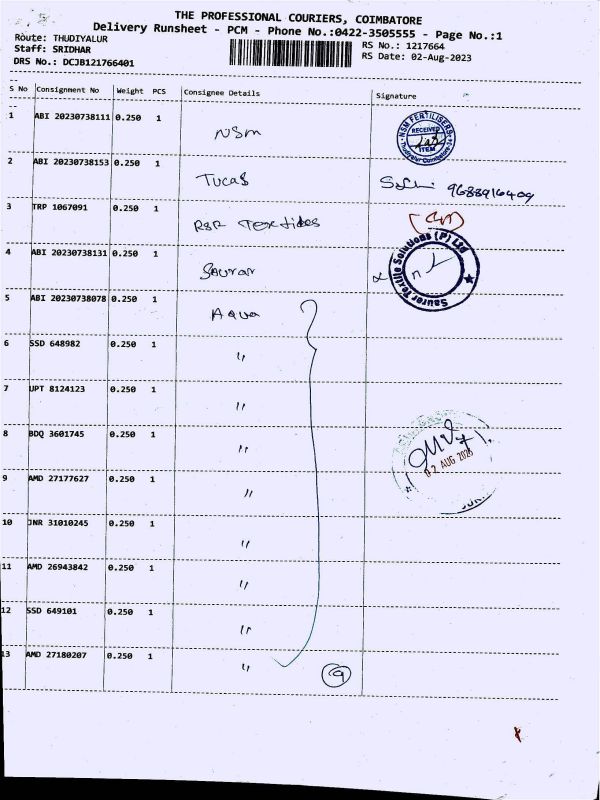 THE PROFESSIONAL COURIERS, COIMBATORE
Delivery Runsheet - PCM - Phone No.:0422-3505555 - Page No.:1
Route: THUDIYALUR
Staff: SRIDHAR
DRS No.: DCJB121766401
RS No.: 1217664
RS Date: 02-Aug-2023
S No Consignment No Weight PCS Consignee Details Signature
1 ABI 20230738111 0.250 1 NSM
NSM FERTILISERS RECEIVED ITEM
2 ABI 20230738153 0.250 1 Tucas
9688916409
3 TRP 1067091 0.250 1 RSR Textiles
4 ABI 20230738131 0.250 1 Saurar
Saurer Textile Solutions (P) Ltd
5 ABI 20230738078 0.250 1 Aqua
6 SSD 648982 0.250 1 "
7 UPT 8124123 0.250 1 "
8 BDQ 3601745 0.250 1 "
02 AUG 2023
9 AMD 27177627 0.250 1 "
10 JNR 31010245 0.250 1 "
11 AMD 26943842 0.250 1 "
12 SSD 649101 0.250 1 "
13 AMD 27180207 0.250 1 "
9